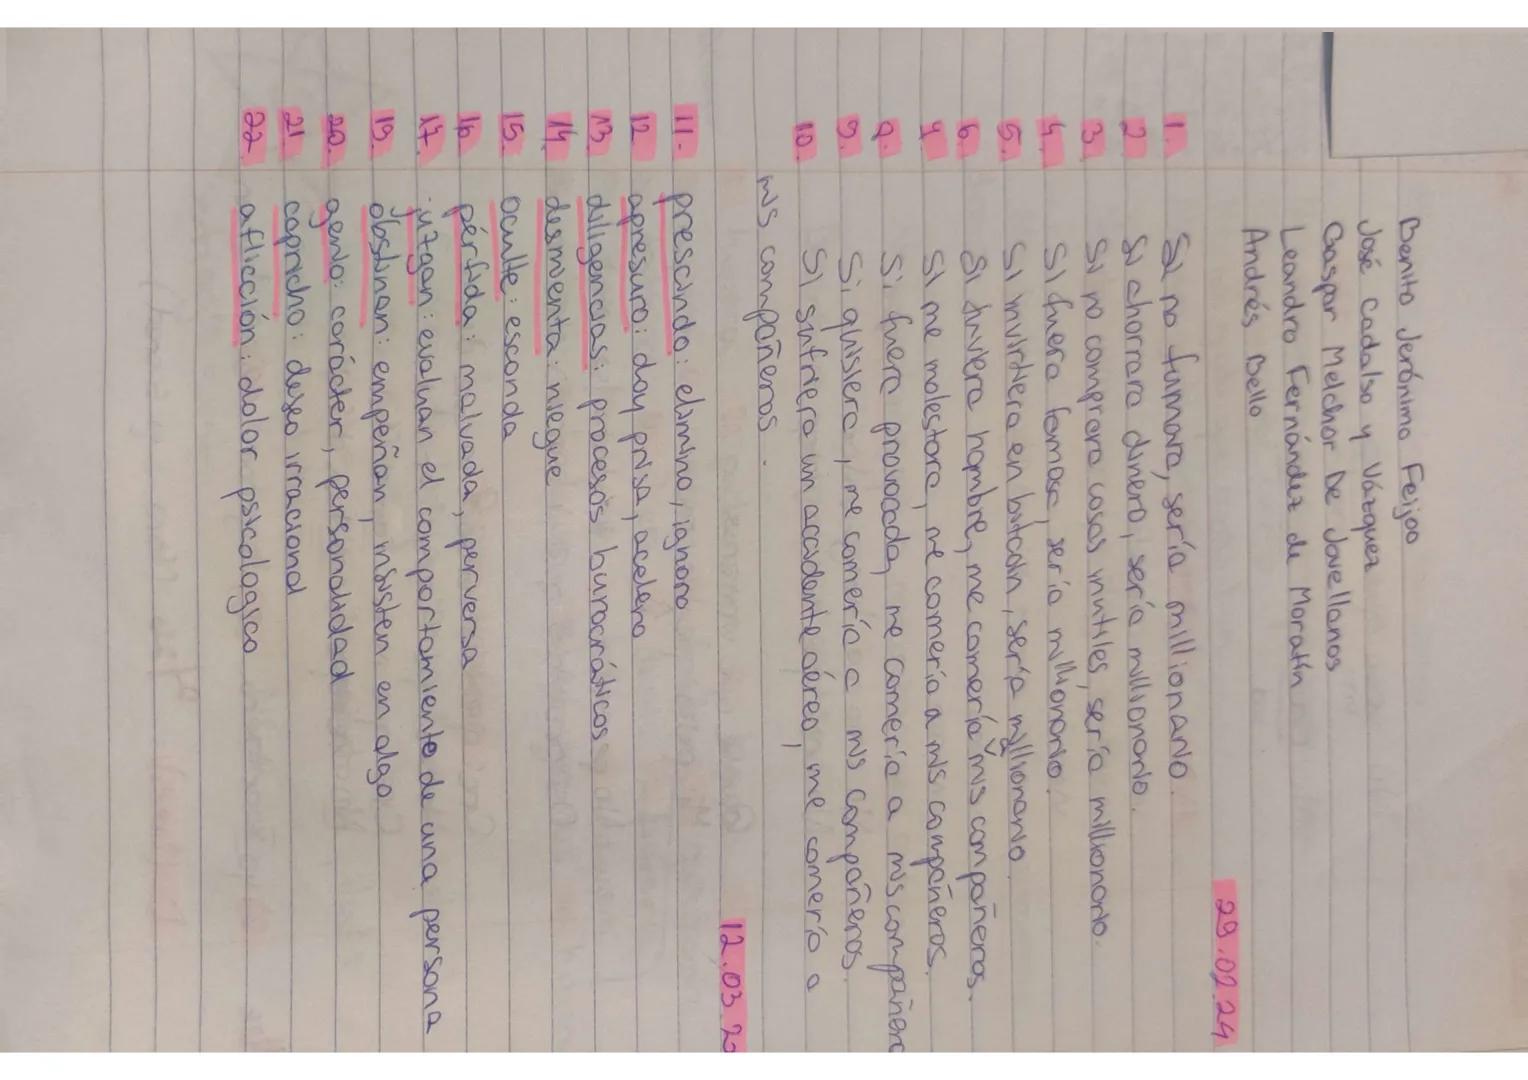 Benito Jerónimo Feijoo
José Cadalso y Vázquez
Gaspar Melchor De Jovellanos
Leandro Fernández de Moratín
Andrés Bello
29.02.24
1. Si no fumara, sería millionario.
2 Si ahorrara dinero, sería millionario.
3. Si no comprara cosas inutiles, sería millionario.
4. Si fuera famosa, sería millionario.
5. Si invirtiera en bitcoin, sería millionario.
6. Si tuviera hambre, me comería a mis compañeros.
7 Si me molestara, me comería a mis compañeros.
8. Si fuera provocada, me comería a mis compañero
9. Si quisiera, me comería a mis compañeros.
10. Si sufriera un accidente aéreo, me comería a
mis compañeros.
12.03.2
11. prescindo: elimino, ignoro
12 apresuro: doy prisa, acelero
13 diligencias: procesos burocráticos
14 desmienta: niegue
15. oculte: esconda
16 pérfida: malvada, perversa
17. juzgan: evaluan el comportamiento de una persona
19. obstinan: empeñan, insisten en algo
20. genio: carácter, personalidad
21. capricho: deseo irracional
22 aflicción: dolor psicologico